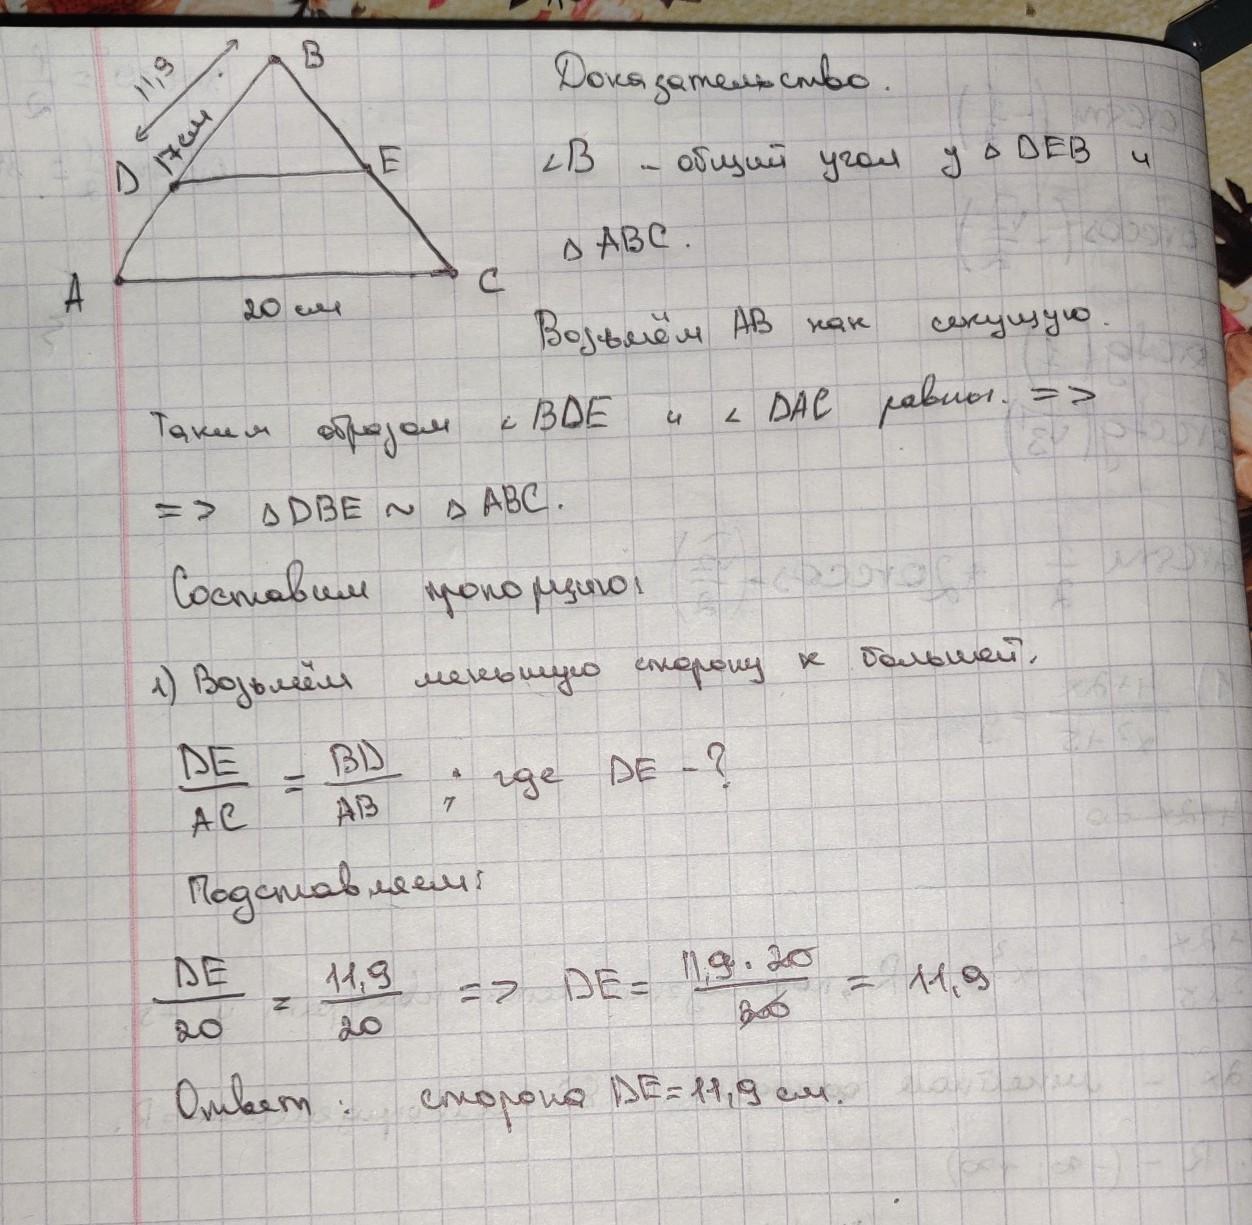 B
11,9
17 см
D
E
A
C
20 см
Доказательство.
∠B – общий угол у △ DEB и
△ ABC.
Возьмём AB как секущую.
Таким образом ∠ BDE и ∠ DAC равны. =>
=> △ DBE ~ △ ABC.
Составим пропорцию:
1) Возьмём меньшую сторону к большей.
DE/AC = BD/AB ; где DE - ?
Подставляем:
DE/20 = 11,9/20 => DE = 11,9 · 20/20 = 11,9
Ответ: сторона DE = 11,9 см.